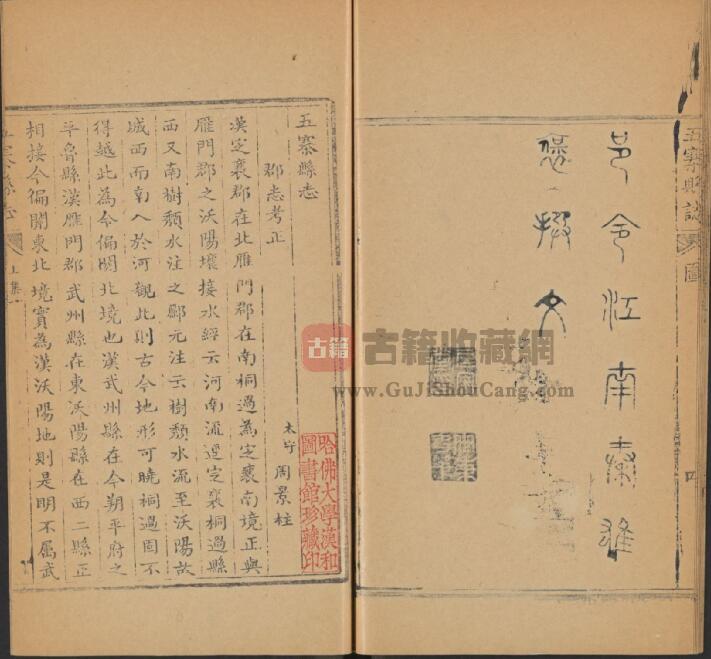 五寨縣誌 圖 四
邑令江南秦雄
褒 文
五寨縣志
郡志考正
太守 周景柱
漢定襄郡在北雁門郡在南桐過為定襄南境正與
雁門郡之沃陽壤接水經云河南流逕定襄桐過縣
西又南樹頹水注之酈元注云樹頹水流至沃陽故
城西而南入於河觀此則古今地形可曉桐過固不
得越此為今偏關北境也漢武州縣在今朔平府之
平魯縣漢雁門郡武州縣在東沃陽縣在西二縣正
相接今偏關東北境實為漢沃陽地則是明不屬武
五寨縣志 上集
哈佛大學漢和
圖書館珍藏印
古籍 古籍收藏網
www.GuJiShouCang.com